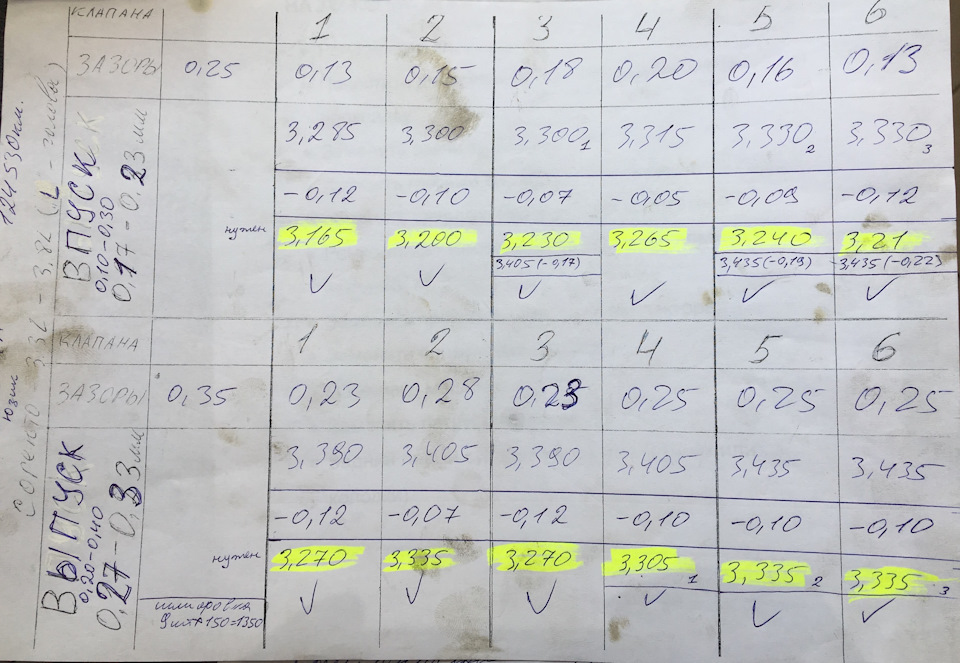 КЛАПАНА 1 2 3 4 5 6
ЗАЗОРЫ 0,25 0,13 0,15 0,18 0,20 0,16 0,13
3,285 3,300 3,300 1 3,315 3,330 2 3,330 3
-0,12 -0,10 -0,07 -0,05 -0,09 -0,12
нужен 3,165 3,200 3,230 3,265 3,240 3,21
3,405(-0,17) 3,435(-0,19) 3,435(-0,22)
✓ ✓ ✓ ✓ ✓ ✓
ВПУСК
0,10-0,30
0,17-0,23 мм
КЛАПАНА 1 2 3 4 5 6
ЗАЗОРЫ 0,35 0,23 0,28 0,23 0,25 0,25 0,25
3,390 3,405 3,390 3,405 3,435 3,435
-0,12 -0,07 -0,12 -0,10 -0,10 -0,10
нужен 3,270 3,335 3,270 3,305 1 3,335 2 3,335 3
✓ ✓ ✓ ✓ ✓ ✓
ВЫПУСК
0,20-0,40
0,27-0,33 мм
шлифовка
9шт*150=1350
124530км.
3.5L - 3.8L (L - головы)